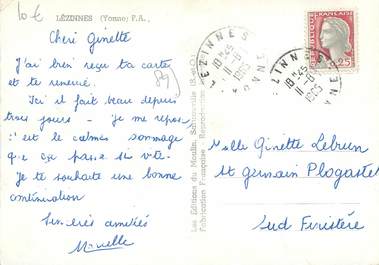 10 €
LÉZINNES (Yonne) F.A.
Chère Ginette
J'ai bien reçu ta carte
et te remercie.
89
Ici il fait beau depuis
trois jours - je me repose
: c'est le calme dommage
que ça passe si vite.
Je te souhaite une bonne
continuation
Sincères amitiés
Les Editions du Moulin,
Fabrication Française - Reproduction
LEZINNES
18H45
11-8
1963
YONNE
LEZINNES
18H45
11-8
1963
YONNE
FRANÇAISE
0,25
Melle Ginette Lebrun
St germain Plogastel
Sud Finistère